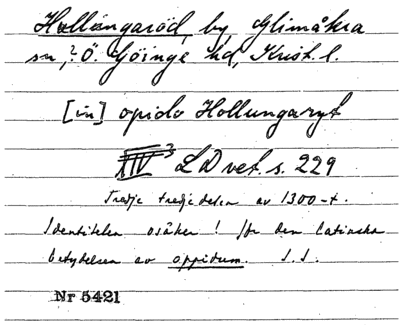 Hollängaröd, by, Glimåkra
sn, ? Ö. Göinge hd, Krist. l.
[in] opido Hollungaryt
XIV 3 LD vet. s. 229
Tredje tredjedelen av 1300-t.
Identiteten osäker! Jfr den latinska
betydelsen av oppidum. I. I.
Nr 5421